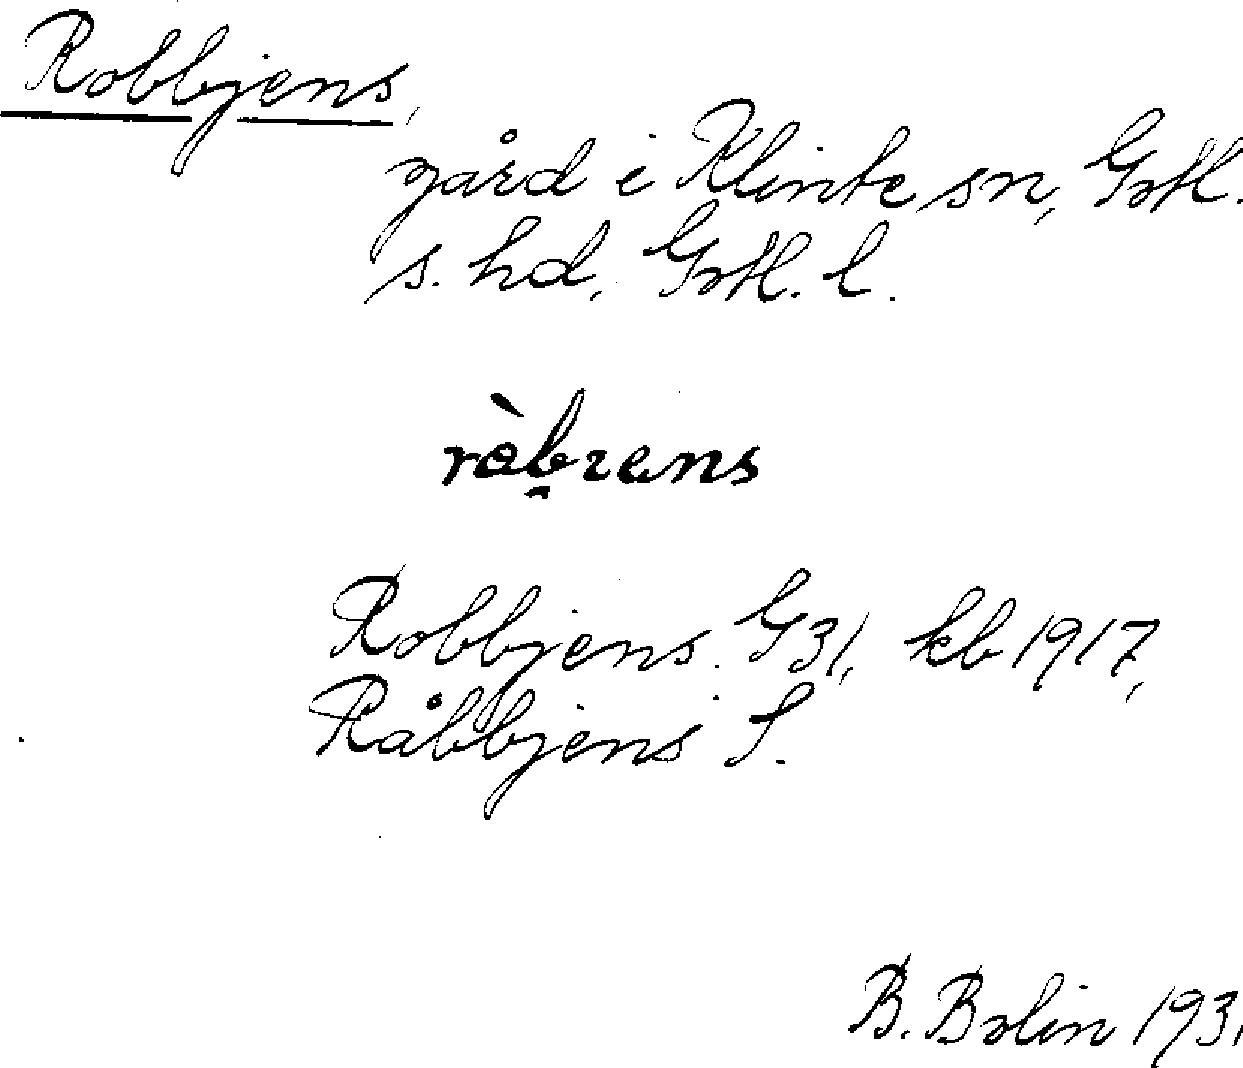 Robbjens,
gård i Klinte sn, Gotl.
s. hd, Gotl. l.
Robbjens. G31, kb 1917,
Råbbjens S.
B. Bolin 1931